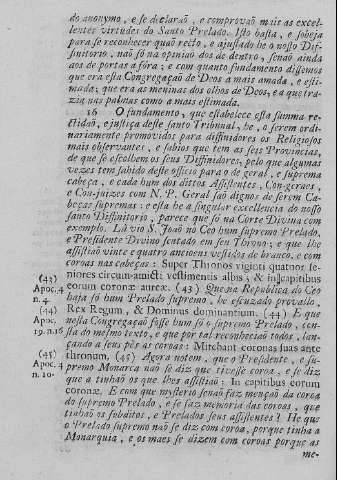 do anonymo, e se declaraõ, e comprovaõ mais as excel-
lentes virtudes do Santo Prelado. Isto basta, e sobeja
para se reconhecer quaõ recto, e ajustado he o nosso Dif-
finitorio, naõ só na opiniaõ dos de dentro, senaõ ainda
aos de portas a fóra; e com quanto fundamento dissemos
que era esta Congregaçaõ de Deos a mais amada, e esti-
mada; que era as meninas dos olhos de Deos, e a que tra-
zia nas palmas como a mais estimada.
16 O fundamento, que estabelece esta summa re-
ctidaõ, e justiça deste santo Tribunal, he, o serem ordi-
nariamente promovidos para diffinidores os Religiosos
mais observantes, e sabios que tem as seis Provincias,
de que se escolhem os seus Diffinidores, pelo que algumas
vezes tem sahido deste officio para o de geral, e suprema
cabeça, e cada hum dos dittos Assistentes, Con-geraes,
e Con-juizes com N. P. Geral saõ dignos de serem Ca-
beças supremas: e esta he a singular excellencia do nosso
santo Diffinitorio, parece que só na Corte Divina com
exemplo. Lá vio S. Joaõ no Ceo hum supremo Prelado,
e Presidente Divino sentado em seu Throno; e que lhe
assistiaõ vinte e quatro anciens vestidos de branco, e com
coroas nas cabeças: Super Thronos viginti quatuor se-
(43) niores circum-amicti vestimentis albis, & in capitibus
Apoc. 4 eorum coronæ aureæ. (43) Que na Republica do Ceo
n. 4. haja só hum Prelado supremo, he escuzado provallo,
(44) Rex Regum, & Dominus dominantium. (44) E que
Apoc. nesta Congregaçaõ fosse hum só o supremo Prelado, cons-
19. n. 16 ta do mesmo texto, e que por tal reconheciaõ todos, lan-
çando a seus pés as coroas: Mittebant coronas suas ante
(45) thronum. (45) Agora notem, que o Presidente, e su-
Apoc. 4 premo Monarca naõ se diz que tivesse coroa, e se diz
n. 10. que a tinhaõ os que lhes assistiaõ: In capitibus eorum
coronæ. E com que mysterio senaõ faz mençaõ da coroa
do supremo Prelado, e se faz memoria das coroas, que
tinhaõ os subditos, e Prelados seus assistentes? He que
o Prelado supremo naõ se diz com coroa, porque tinha a
Monarquia, e os maes se dizem com coroas porque as
me-